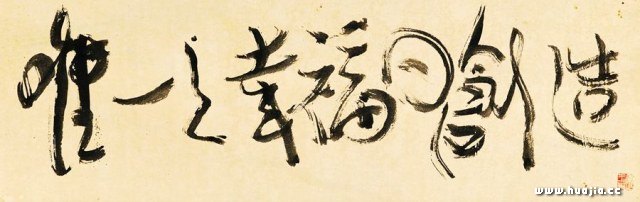 唯一之幸福曰創造
www.huajia.cc